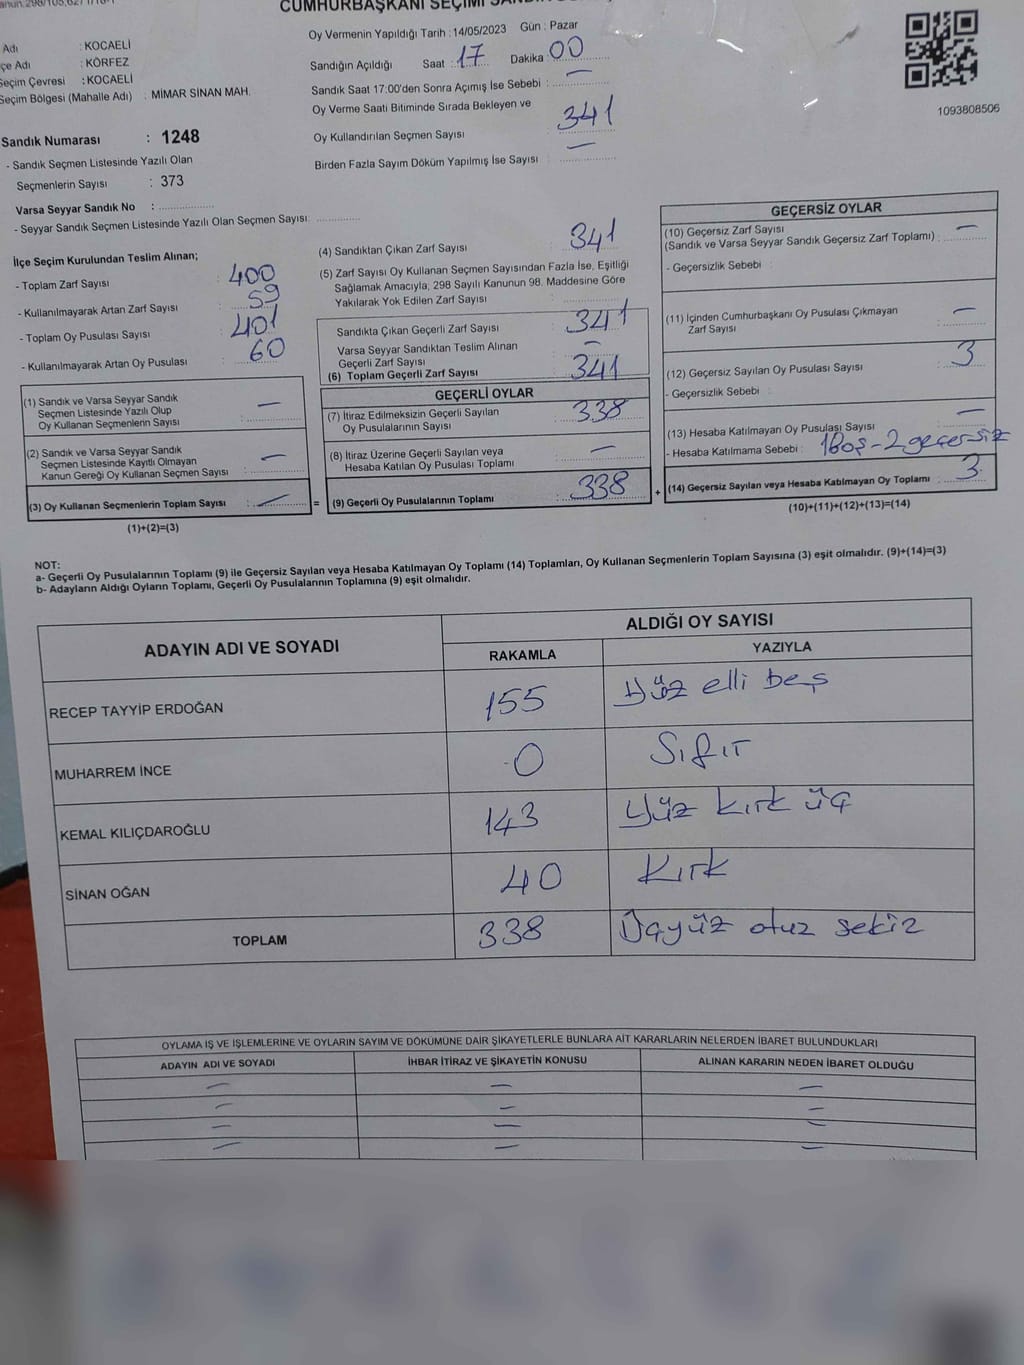 CUMHURBAŞKANI SEÇİMİ
Adı : KOCAELİ
çe Adı : KÖRFEZ
Seçim Çevresi : KOCAELİ
Seçim Bölgesi (Mahalle Adı) : MİMAR SİNAN MAH.
Sandık Numarası : 1248
- Sandık Seçmen Listesinde Yazılı Olan
Seçmenlerin Sayısı : 373
Varsa Seyyar Sandık No :
- Seyyar Sandık Seçmen Listesinde Yazılı Olan Seçmen Sayısı:
Oy Vermenin Yapıldığı Tarih : 14/05/2023 Gün : Pazar
Sandığın Açıldığı Saat : 17 Dakika : 00
Sandık Saat 17:00'den Sonra Açımış İse Sebebi : —
Oy Verme Saati Bitiminde Sırada Bekleyen ve
Oy Kullandırılan Seçmen Sayısı : 341
Birden Fazla Sayım Döküm Yapılmış İse Sayısı : —
1093808506
İlçe Seçim Kurulundan Teslim Alınan;
- Toplam Zarf Sayısı : 400
- Kullanılmayarak Artan Zarf Sayısı : 59
- Toplam Oy Pusulası Sayısı : 401
- Kullanılmayarak Artan Oy Pusulası : 60
(1) Sandık ve Varsa Seyyar Sandık
Seçmen Listesinde Yazılı Olup
Oy Kullanan Seçmenlerin Sayısı : —
(2) Sandık ve Varsa Seyyar Sandık
Seçmen Listesinde Kayıtlı Olmayan
Kanun Gereği Oy Kullanan Seçmen Sayısı : —
(3) Oy Kullanan Seçmenlerin Toplam Sayısı : — =
(1)+(2)=(3)
(4) Sandıktan Çıkan Zarf Sayısı : 341
(5) Zarf Sayısı Oy Kullanan Seçmen Sayısından Fazla İse, Eşitliği
Sağlamak Amacıyla; 298 Sayılı Kanunun 98. Maddesine Göre
Yakılarak Yok Edilen Zarf Sayısı :
Sandıkta Çıkan Geçerli Zarf Sayısı : 341
Varsa Seyyar Sandıktan Teslim Alınan
Geçerli Zarf Sayısı : —
(6) Toplam Geçerli Zarf Sayısı : 341
GEÇERLİ OYLAR
(7) İtiraz Edilmeksizin Geçerli Sayılan
Oy Pusulalarının Sayısı : 338
(8) İtiraz Üzerine Geçerli Sayılan veya
Hesaba Katılan Oy Pusulası Toplamı : —
(9) Geçerli Oy Pusulalarının Toplamı : 338 +
GEÇERSİZ OYLAR
(10) Geçersiz Zarf Sayısı
(Sandık ve Varsa Seyyar Sandık Geçersiz Zarf Toplamı) : —
- Geçersizlik Sebebi :
(11) İçinden Cumhurbaşkanı Oy Pusulası Çıkmayan
Zarf Sayısı : —
(12) Geçersiz Sayılan Oy Pusulası Sayısı : 3
- Geçersizlik Sebebi :
(13) Hesaba Katılmayan Oy Pusulası Sayısı : —
- Hesaba Katılmama Sebebi : 1 Boş - 2 geçersiz
(14) Geçersiz Sayılan veya Hesaba Katılmayan Oy Toplamı : 3
(10)+(11)+(12)+(13)=(14)
NOT:
a- Geçerli Oy Pusulalarının Toplamı (9) ile Geçersiz Sayılan veya Hesaba Katılmayan Oy Toplamı (14) Toplamları, Oy Kullanan Seçmenlerin Toplam Sayısına (3) eşit olmalıdır. (9)+(14)=(3)
b- Adayların Aldığı Oyların Toplamı, Geçerli Oy Pusulalarının Toplamına (9) eşit olmalıdır.
ADAYIN ADI VE SOYADI ALDIĞI OY SAYISI
RAKAMLA YAZIYLA
RECEP TAYYİP ERDOĞAN 155 Yüz elli beş
MUHARREM İNCE 0 Sıfır
KEMAL KILIÇDAROĞLU 143 Yüz kırk üç
SİNAN OĞAN 40 Kırk
TOPLAM 338 Üçyüz otuz sekiz
OYLAMA İŞ VE İŞLEMLERİNE VE OYLARIN SAYIM VE DÖKÜMÜNE DAİR ŞİKAYETLERLE BUNLARA AİT KARARLARIN NELERDEN İBARET BULUNDUKLARI
ADAYIN ADI VE SOYADI İHBAR İTİRAZ VE ŞİKAYETİN KONUSU ALINAN KARARIN NEDEN İBARET OLDUĞU
— — —
— — —
— — —
— — —